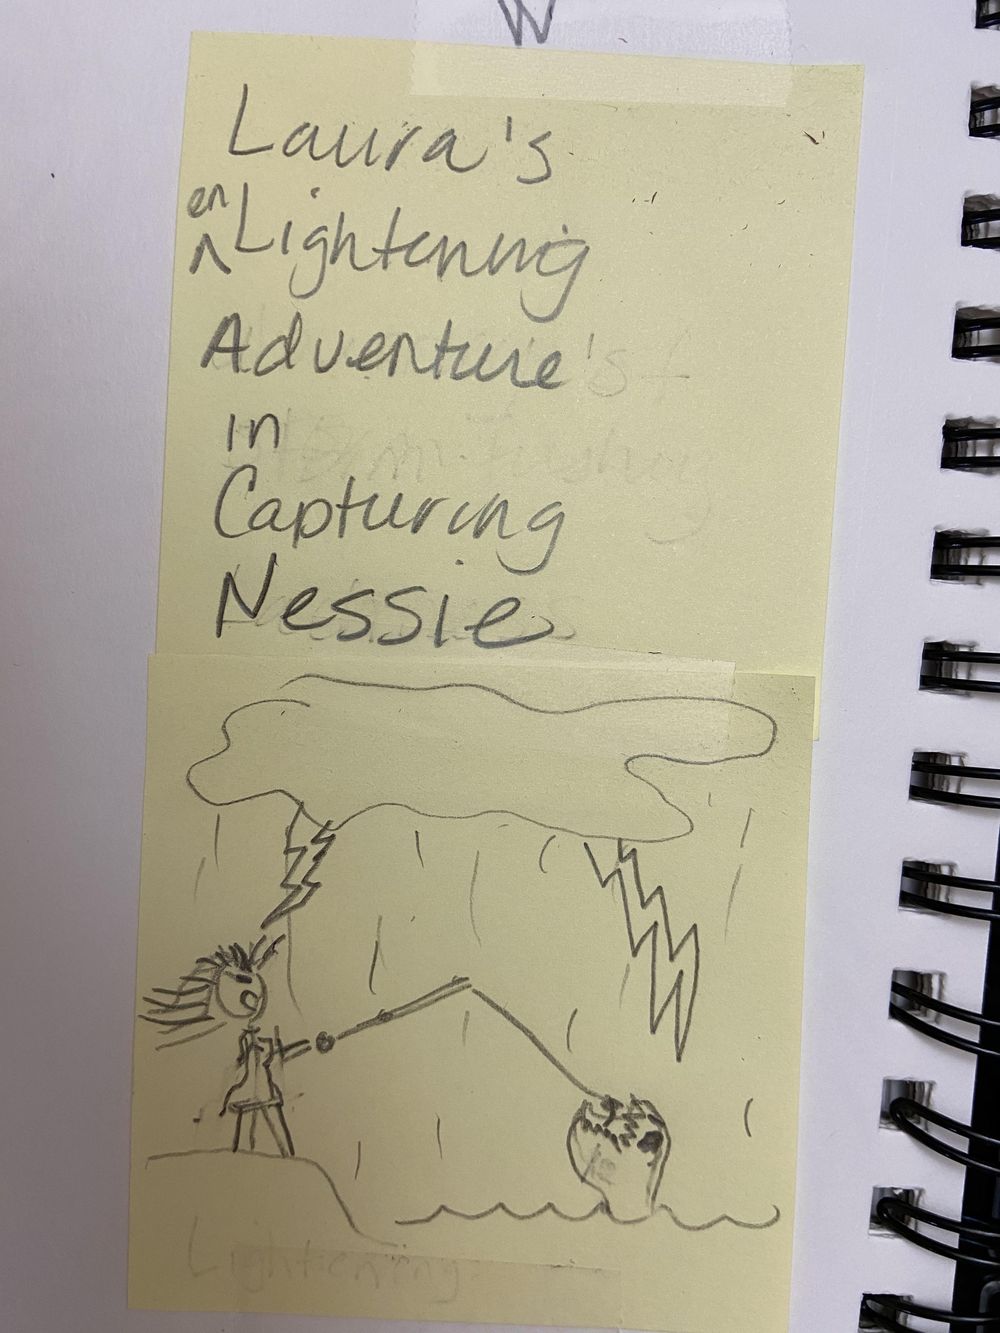 W
Laura's
en
^Lightening
Adventure
in
Capturing
Nessie
Lightening